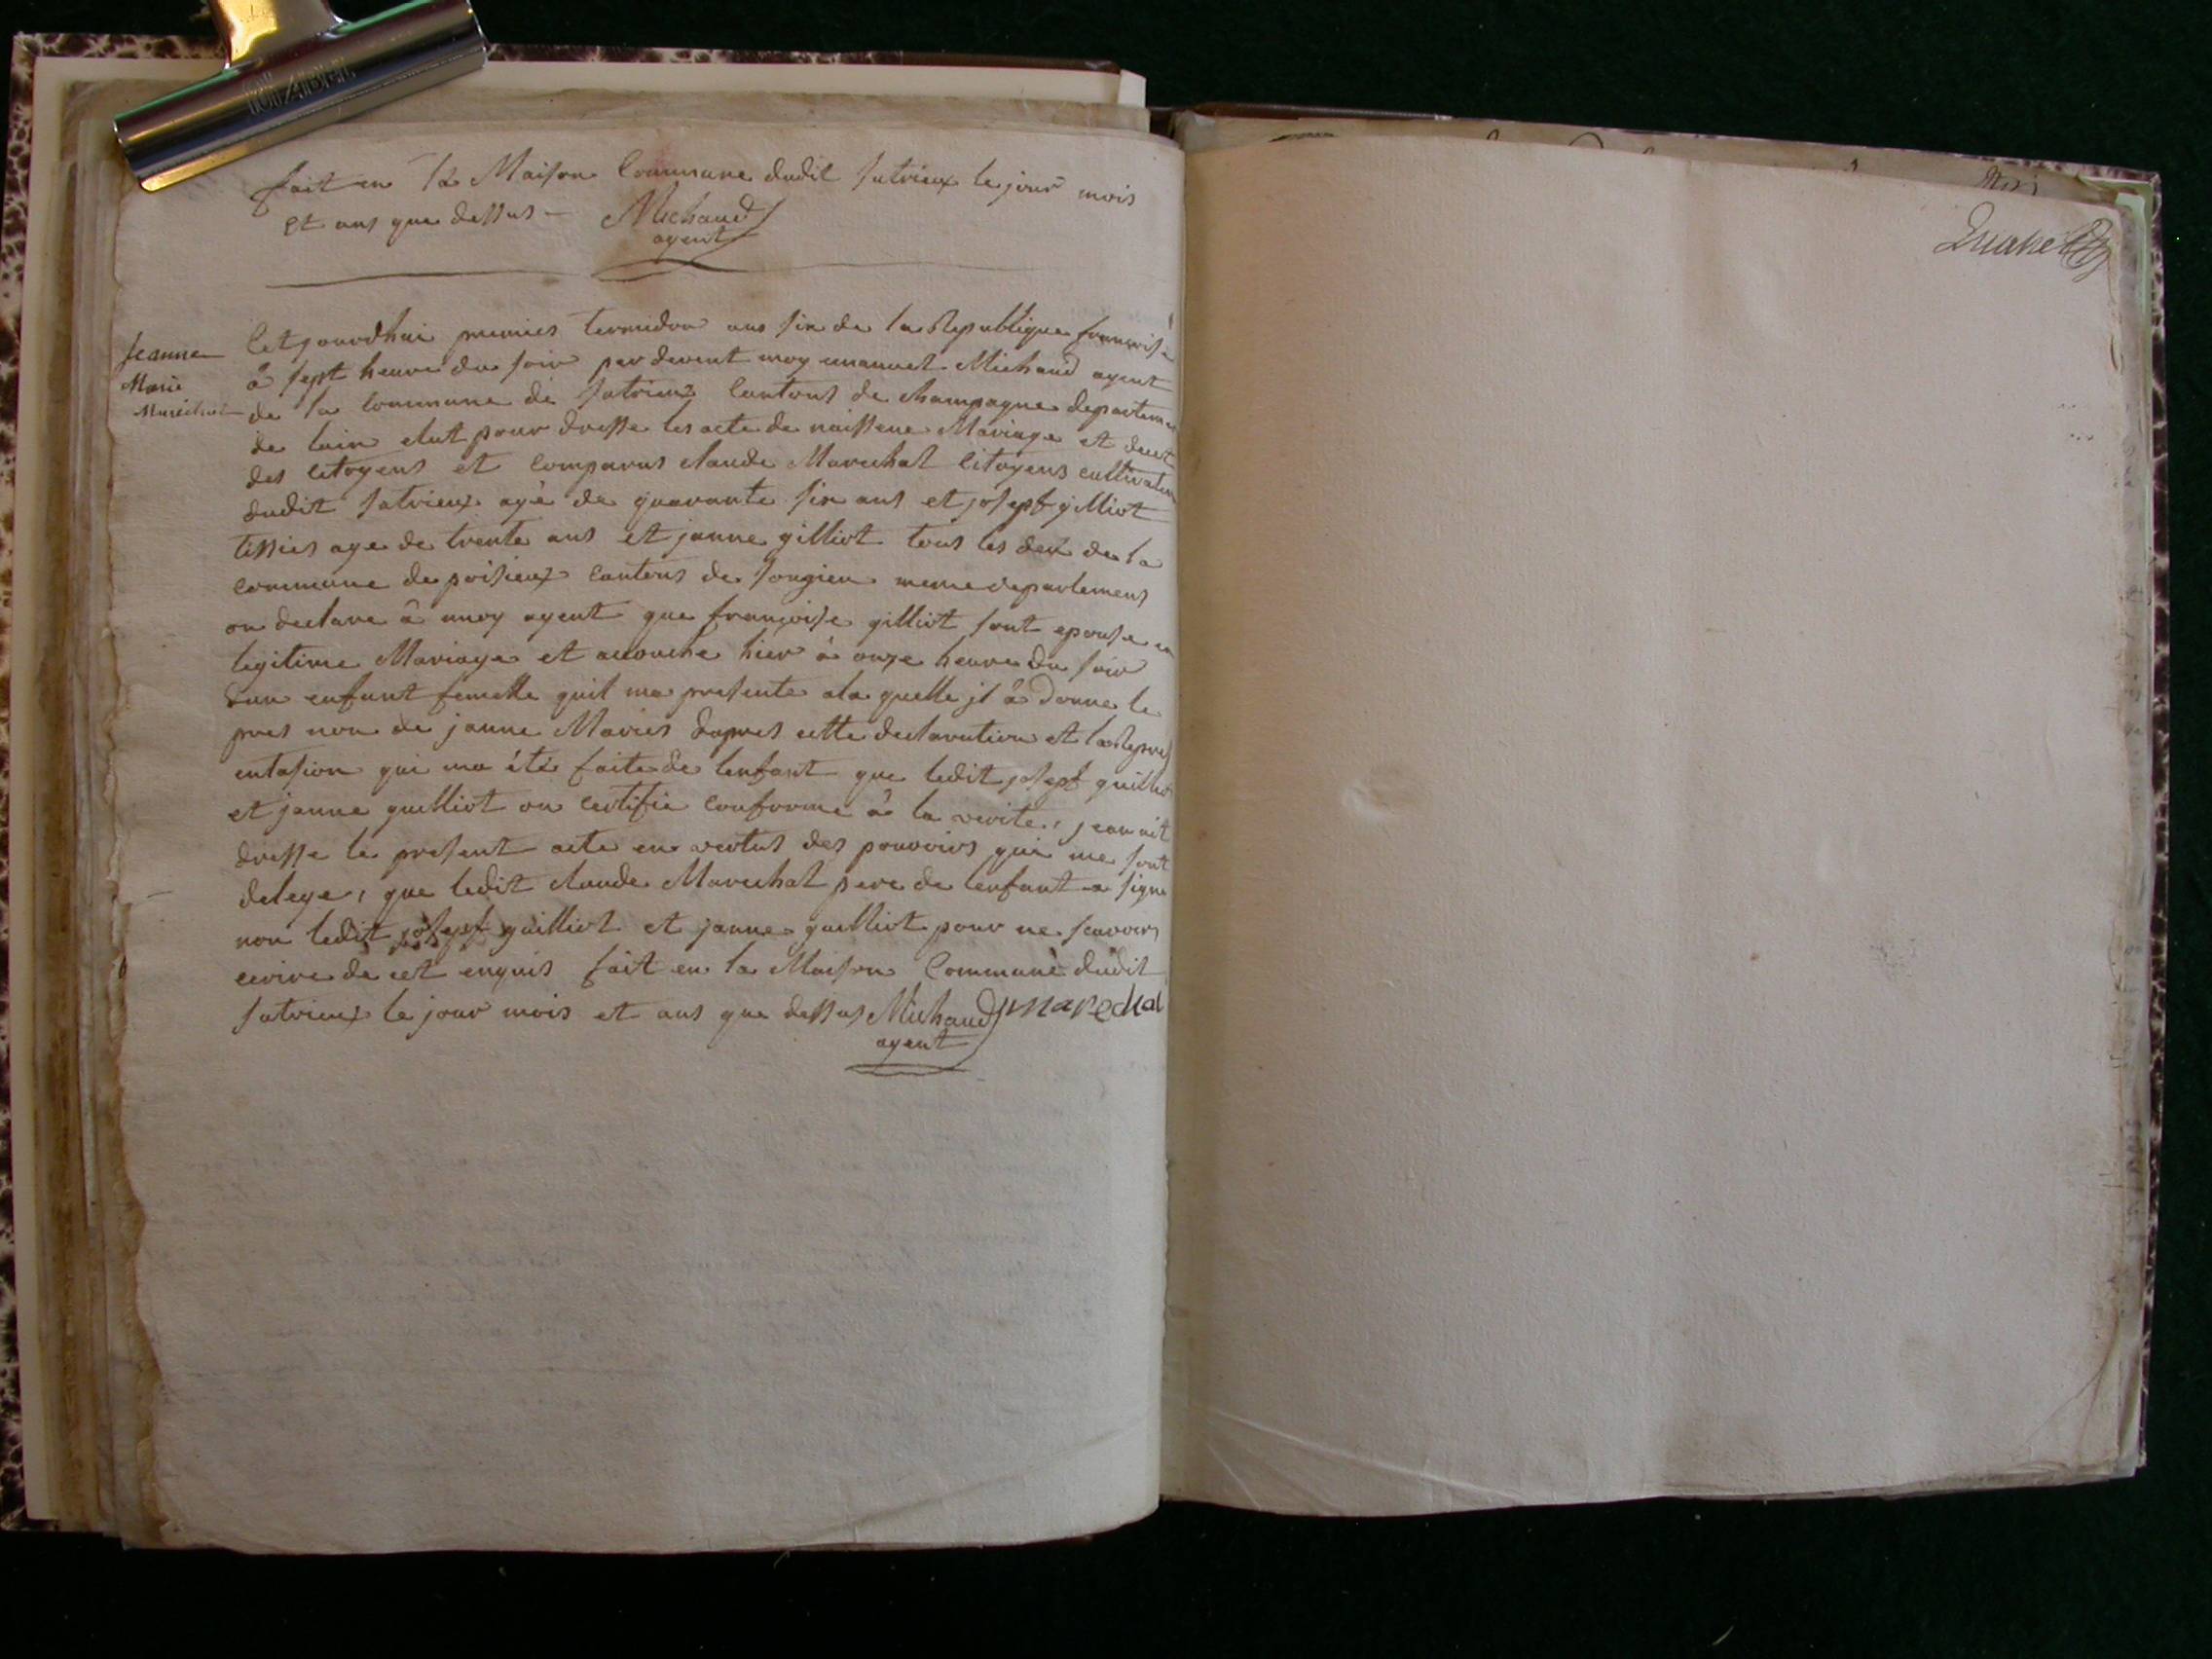 fait en la Maison Commune dudit sutrieux le jour mois
et ans que dessus - Michaud
agent
Jeanne
Marie
Maréchal
Cetjourdhui premier termidor ans six de la Republique francoise
à sept heure du soir par devent moy emanuel Michaud agent
de la Commune de sutrieux Cantons de champagne departeme
de lain elut pour dresse les acte de naissene Mariage et decet
des Citoyens et Comparus claude Marechal Citoyens cultivateur
dudit sutrieux agé de quarante six ans et josept gilliot
tissier age de trente ans et janne gilliot tous les deux de la
Commune de poisieux Cantons de songieu meme departemens
on declare à moy agent que françoise gilliot sont epouse en
legitime Mariage et acouche hier à onze heure du soir
dun enfant femelle quil ma presente ala quelle jl à donne le
pres non de janne Maries dapres cette declaration et la Repres
entasion qui ma été faite de lenfant que ledit josept guilliot
et janne guilliot on Certifie Conforme à la verite, jean ait
dresse le present acte en vertus des pouvoirs qui me sont
delege, que ledit claude Marechal pere de lenfant a signe
non ledit josept guilliot et janne guilliot pour ne scavoirs
ecrire de cet enquis fait en la Maison Commune dudit
sutrieux le jour mois et ans que dessus Michaud marechal
agent